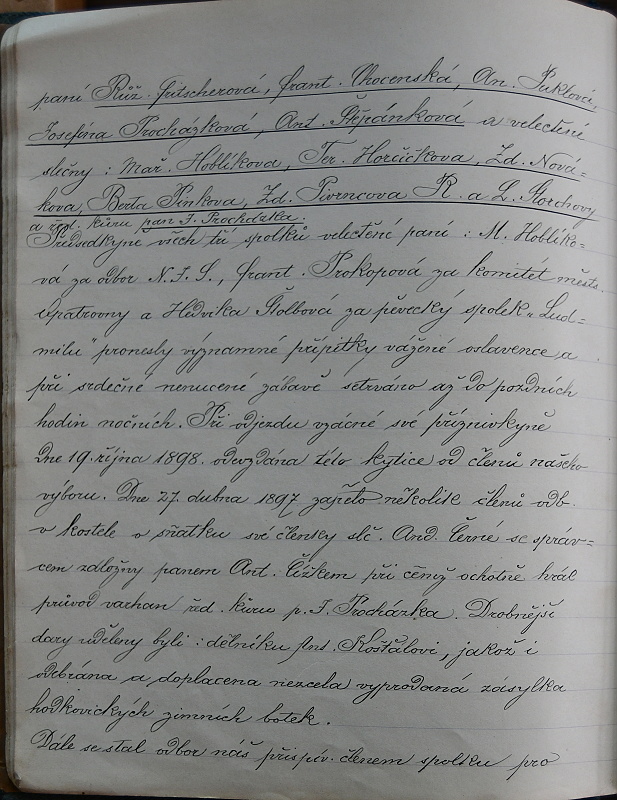 paní Růž. Fritscherová, Frant. Chocenská, An. Puktová,
Josefína Procházková, Ant. Štěpánková a velectěné
slečny : Mař. Hoblíkova, Ter. Horčičkova, Zd. Nová-
kova, Berta Pinkova, Zd. Pivrncova R. a L. Štorchovy
a řed. kůru pan J. Procházka.
Předsedkyně všech tří spolků velectěné paní : M. Hoblíko-
vá za odbor N. J. S., Frant. Prokopová za komitét městs.
opatrovny a Hedvika Štolbová za pěvecký spolek „Lud-
milu" pronesly významné přípitky vážené oslavence a
při srdečné nenucené zábavě setrváno až do pozdních
hodin nočních. Při odjezdu vzácné své příznivkyně
Dne 19. října 1898. odevzdána této kytice od členů našeho
výboru. Dne 27. dubna 1897 zapělo několik členů odb.
v kostele o sňatku své členky slč. And. Černé se správ-
cem záložny panem Ant. Čížkem při čemž ochotně hrál
průvod varhan řed. kůru p. J. Procházka. Drobnější
dary uděleny byli : dělníku Ans. Košťálovi, jakož i
odebrána a doplacena nezcela vyprodaná zásylka
hodkovických zimních botek.
Dále se stal odbor náš přispív. členem spolku pro